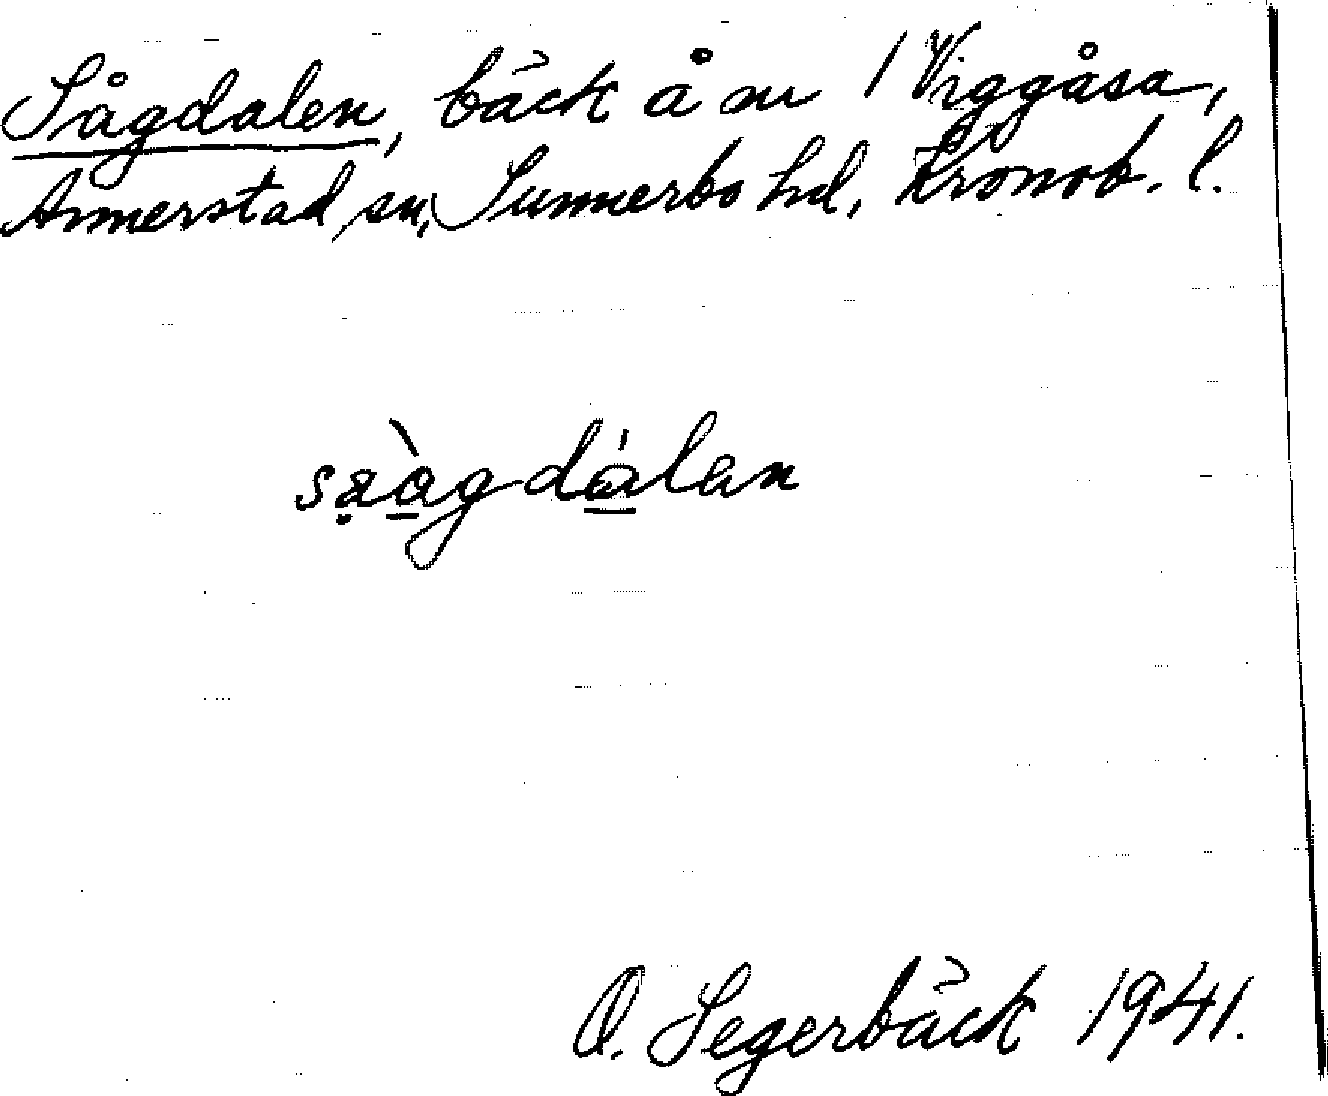 Sågdalen, bäck å nr 1 Viggåsa,
Annerstad sn, Sunnerbo hd, Kronob. l.
sa̤àg dálen
O. Segerbäck 1941.